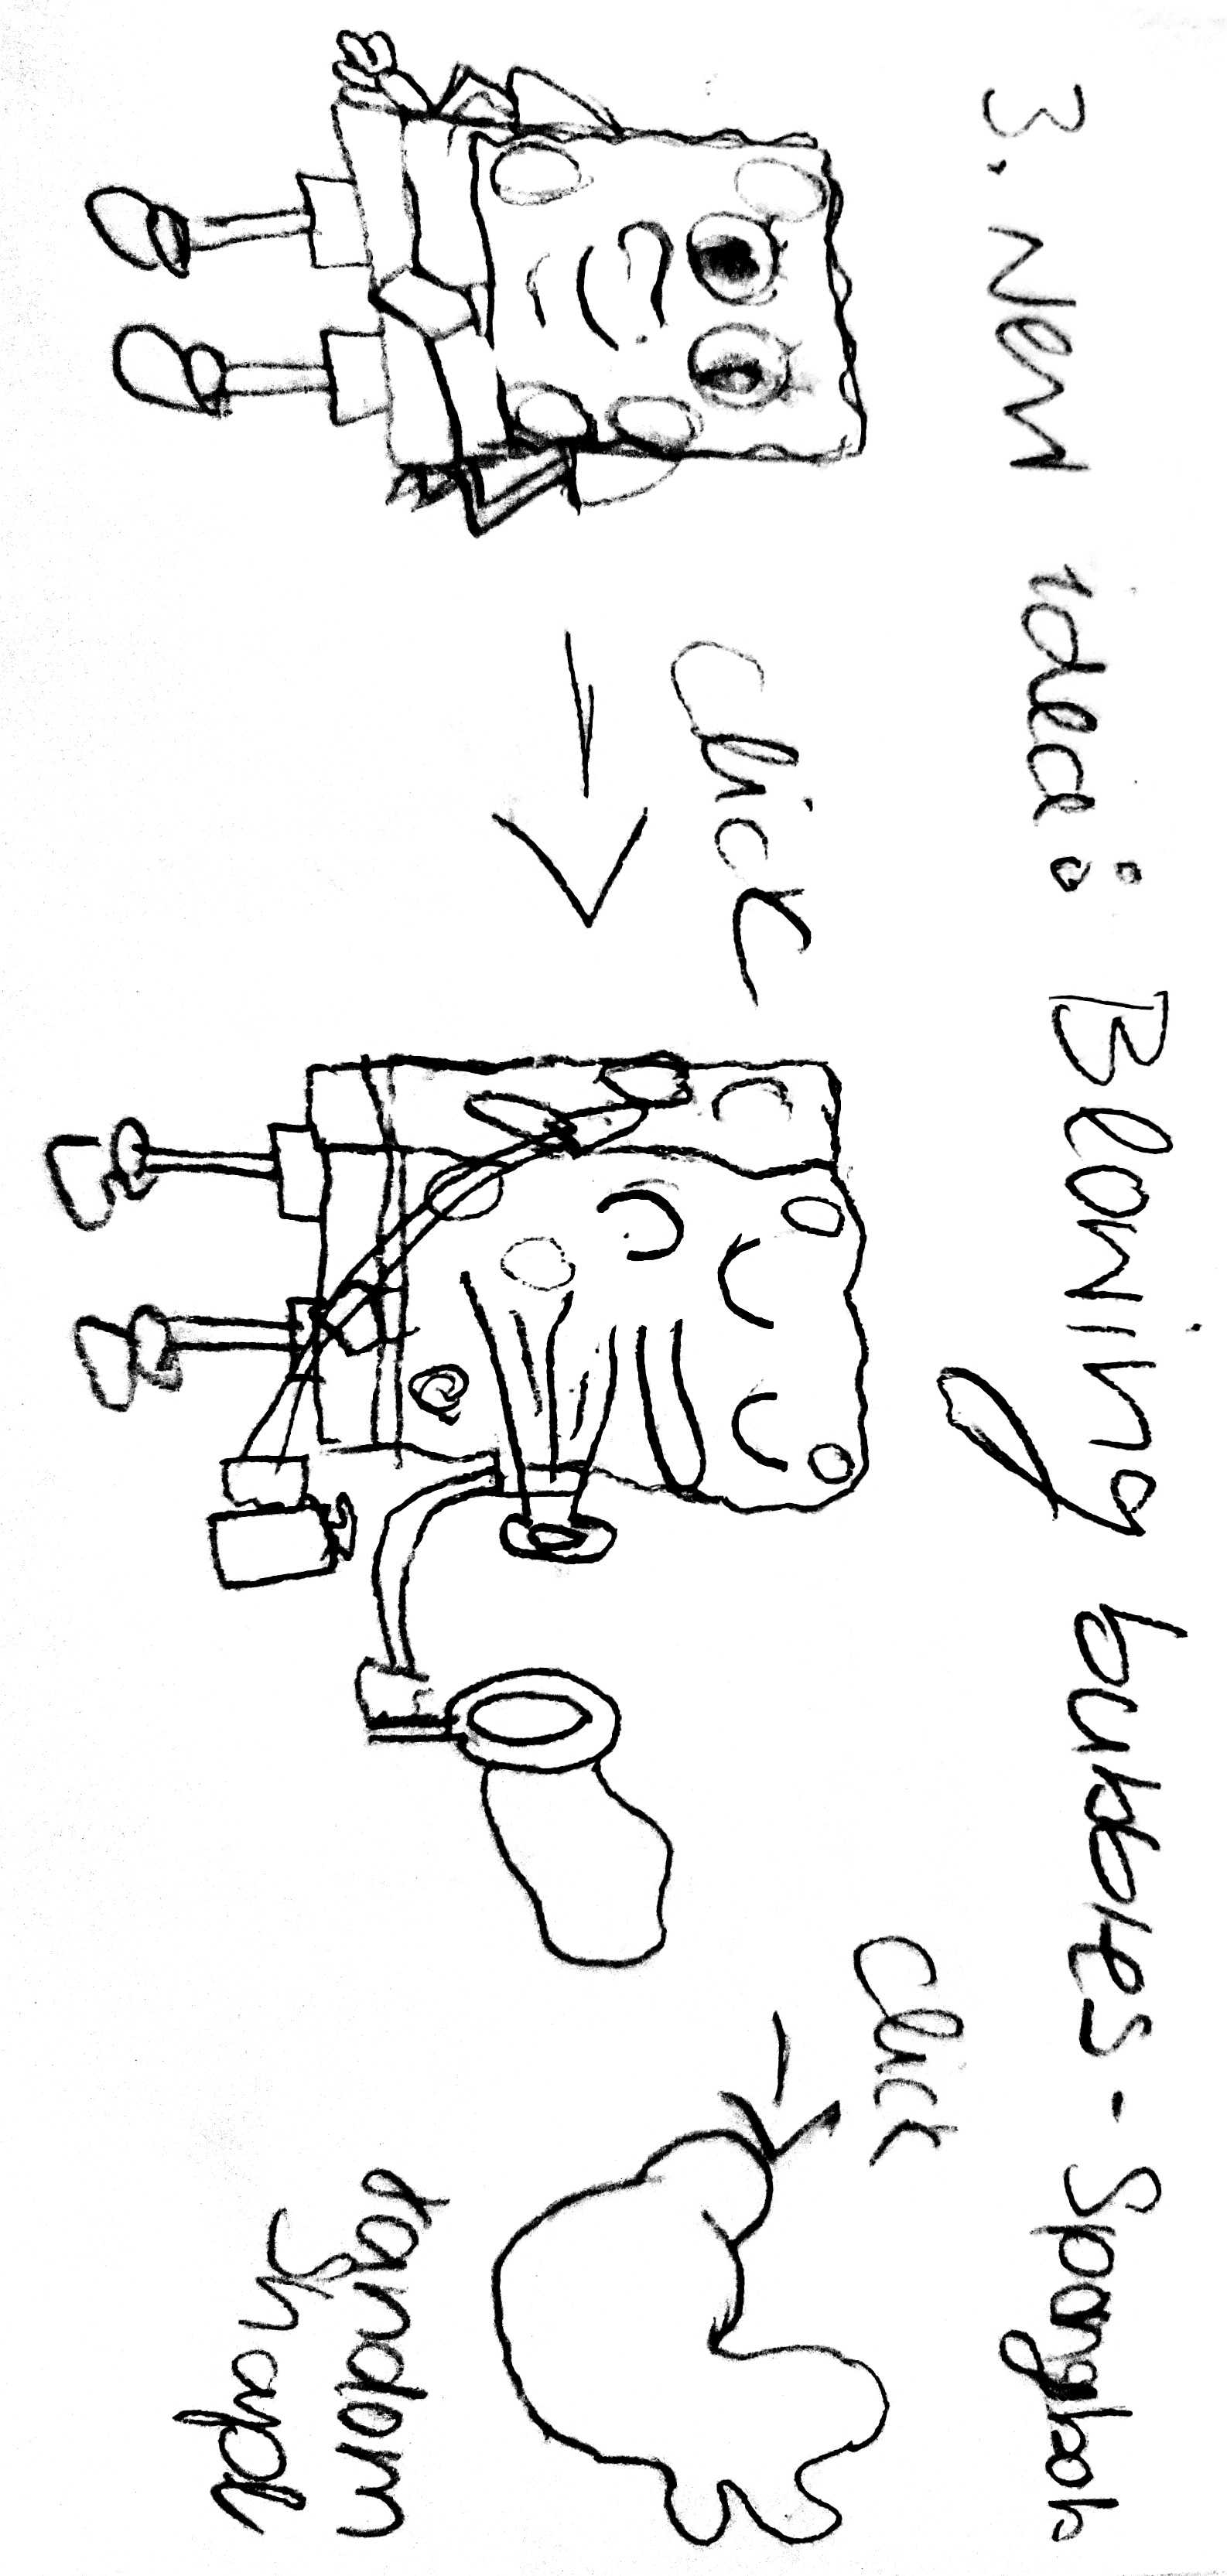 3. New idea: Blowing bubbles - Spongbob
click
click
random
shape